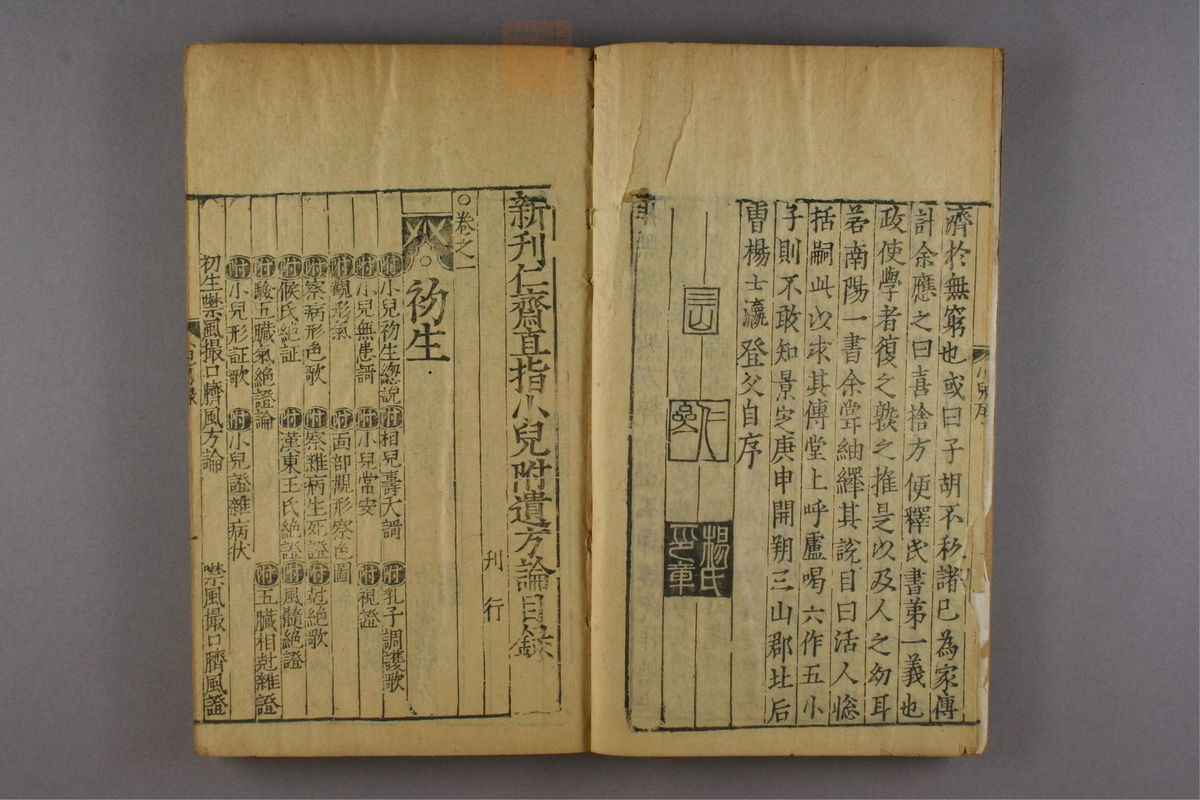 濟於無窮也或曰子胡不私諸己為家傳
計余應之曰喜捨方便釋氏書第一義也
政使學者復之敩之推是以及人之幼耳
若南陽一書余嘗紬繹其說目曰活人總
括嗣此以求其傳堂上呼盧喝六作五小
子則不敢知景定庚申開朔三山郡北后
曹楊士瀛登父自序
三山
仁齋
楊氏
印章
小兒序
新刊仁齋直指小兒附遺方論目錄
刊行
○卷之一
初生
附小兒初生總說 附相兒壽夭謌 附乳子調護歌
附小兒無患謌 附小兒常安 附視證
附觀形氣 附面部觀形察色圖
附察病形色歌 附察雜病生死證 附尅絕歌
附候氏絕証 附漢東王氏絕證 附風髓絕證
附驗五臟氣絕證論 附五臟相尅雜證
附小兒形証歌 附小兒證雜病狀
初生噤風撮口臍風方論 噤風撮口臍風證